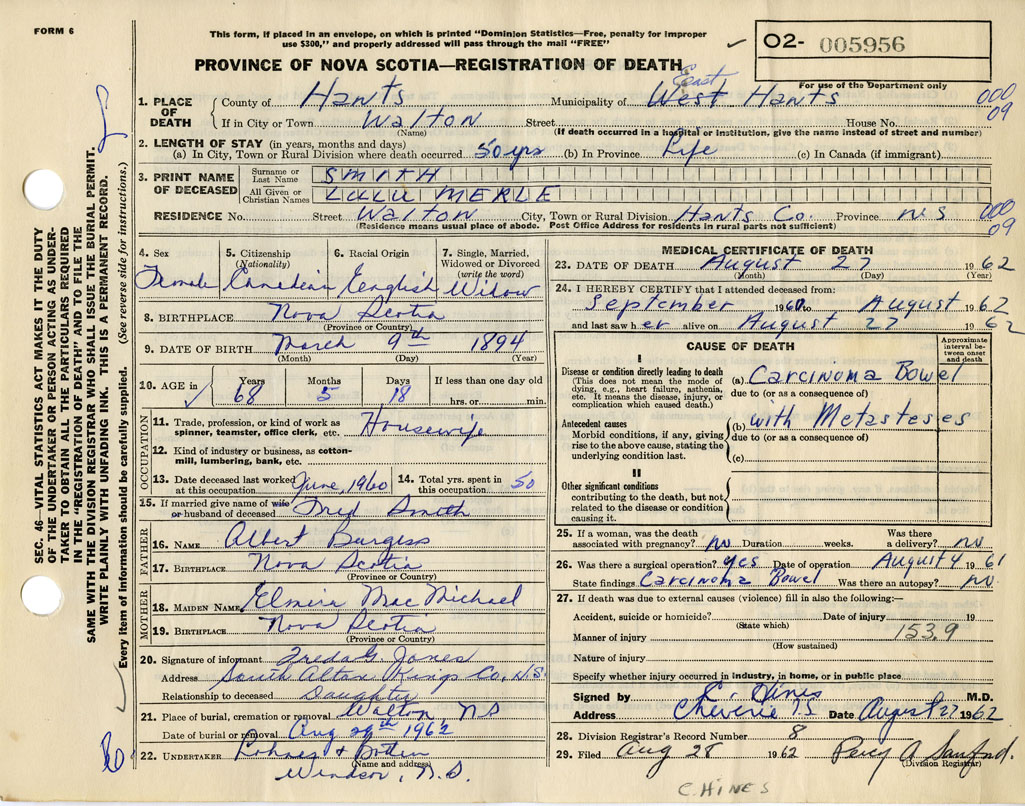 FORM 6
This form, if placed in an envelope, on which is printed "Dominion Statistics—Free, penalty for improper
use $300," and properly addressed will pass through the mail "FREE"
O2- 005956
For use of the Department only
PROVINCE OF NOVA SCOTIA—REGISTRATION OF DEATH
SEC. 46—VITAL STATISTICS ACT MAKES IT THE DUTY
OF THE UNDERTAKER OR PERSON ACTING AS UNDER-
TAKER TO OBTAIN ALL THE PARTICULARS REQUIRED
IN THE "REGISTRATION OF DEATH" AND TO FILE THE
SAME WITH THE DIVISION REGISTRAR WHO SHALL ISSUE THE BURIAL PERMIT.
WRITE PLAINLY WITH UNFADING INK. THIS IS A PERMANENT RECORD.
Every item of information should be carefully supplied. (See reverse side for instructions.)
East
1. PLACE OF DEATH County of Hants Municipality of West Hants 000
09
If in City or Town Walton Street House No.
(Name) (If death occurred in a hospital or institution, give the name instead of street and number)
2. LENGTH OF STAY (in years, months and days)
(a) In City, Town or Rural Division where death occurred 50 yrs (b) In Province Life (c) In Canada (if immigrant)
3. PRINT NAME OF DECEASED
Surname or Last Name SMITH
All Given or Christian Names LULU MERLE
RESIDENCE No. Street Walton City, Town or Rural Division Hants Co. Province N S 000
09
(Residence means usual place of abode. Post Office Address for residents in rural parts not sufficient)
4. Sex Female
5. Citizenship (Nationality) Canadian
6. Racial Origin English
7. Single, Married, Widowed or Divorced (write the word) Widow
8. BIRTHPLACE Nova Scotia
(Province or Country)
9. DATE OF BIRTH March 9th 1894
(Month) (Day) (Year)
10. AGE in Years 68 Months 5 Days 18 If less than one day old hrs. or min.
OCCUPATION
11. Trade, profession, or kind of work as spinner, teamster, office clerk, etc. Housewife
12. Kind of industry or business, as cotton-mill, lumbering, bank, etc.
13. Date deceased last worked at this occupation June, 1960 14. Total yrs. spent in this occupation 50
15. If married give name of wife or husband of deceased Fred Smith
FATHER
16. NAME Albert Burgess
17. BIRTHPLACE Nova Scotia
(Province or Country)
MOTHER
18. MAIDEN NAME Elmira MacMichael
19. BIRTHPLACE Nova Scotia
(Province or Country)
20. Signature of informant Freda G. Jones
Address South Alton Kings Co, N.S.
Relationship to deceased Daughter
21. Place of burial, cremation or removal Walton NS
Date of burial or removal Aug 29th 1962
22. UNDERTAKER
(Name and address)
Windsor, N.S.
MEDICAL CERTIFICATE OF DEATH
23. DATE OF DEATH August 27 1962
(Month) (Day) (Year)
24. I HEREBY CERTIFY that I attended deceased from:
September 1960 to August 1962
and last saw her alive on August 27 1962
CAUSE OF DEATH
Approximate interval between onset and death
I
Disease or condition directly leading to death
(This does not mean the mode of dying, e.g., heart failure, asthenia, etc. It means the disease, injury, or complication which caused death.)
(a) Carcinoma Bowel
due to (or as a consequence of)
Antecedent causes
Morbid conditions, if any, giving rise to the above cause, stating the underlying condition last.
(b) with Metasteses
due to (or as a consequence of)
(c)
II
Other significant conditions
contributing to the death, but not related to the disease or condition causing it.
25. If a woman, was the death associated with pregnancy? no Duration weeks. Was there a delivery? no
26. Was there a surgical operation? yes Date of operation August 4 1961
State findings Carcinoma Bowel Was there an autopsy? no
27. If death was due to external causes (violence) fill in also the following:—
Accident, suicide or homicide? Date of injury 19
(State which)
Manner of injury 153.9
(How sustained)
Nature of injury
Specify whether injury occurred in industry, in home, or in public place
Signed by C. Hines M.D.
Address Cheverie NS Date August 27 1962
28. Division Registrar's Record Number 8
29. Filed Aug 28 1962 Percy A Sanford.
(Division Registrar)
C. HINES